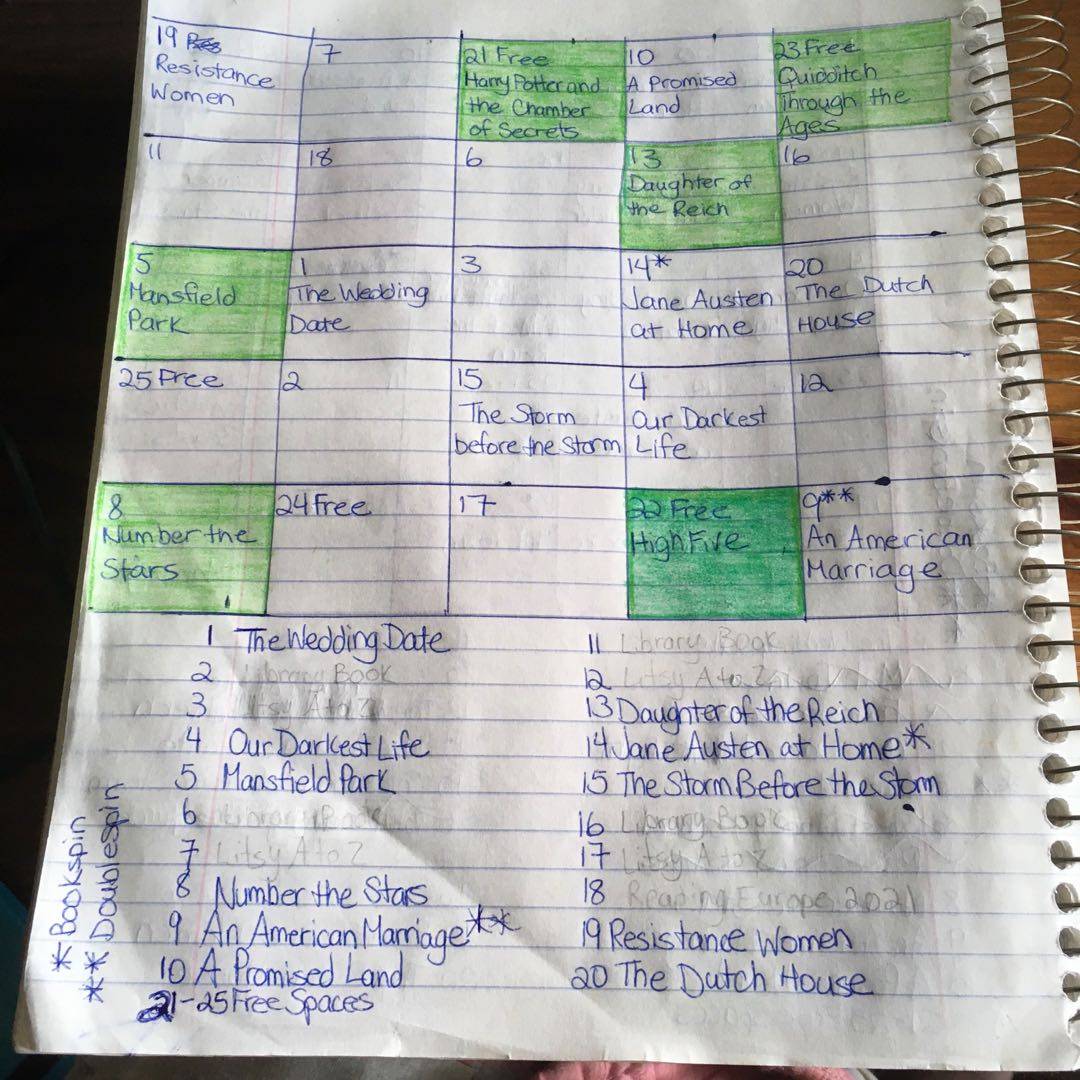 19
Resistance
Women
7
21 Free
Harry Potter and
the Chamber
of Secrets
10
A Promised
Land
23 Free
Quidditch
Through the
Ages
11
18
6
13
Daughter of
the Reich
16
5
Mansfield
Park
1
The Wedding
Date
3
14*
Jane Austen
at Home
20
The Dutch
House
25 Free
2
15
The Storm
before the Storm
4
Our Darkest
Life
12
8
Number the
Stars
24 Free
17
22 Free
High Five
9**
An American
Marriage
1 The Wedding Date
2 Library Book
3 Litsy A to Z
4 Our Darkest Life
5 Mansfield Park
6 Library Book
7 Litsy A to Z
8 Number the Stars
9 An American Marriage**
10 A Promised Land
21-25 Free Spaces
11 Library Book
12 Litsy A to Z
13 Daughter of the Reich
14 Jane Austen at Home*
15 The Storm Before the Storm
16 Library Book
17 Litsy A to Z
18 Reading Europe 2021
19 Resistance Women
20 The Dutch House
* Bookspin
** Doublespin